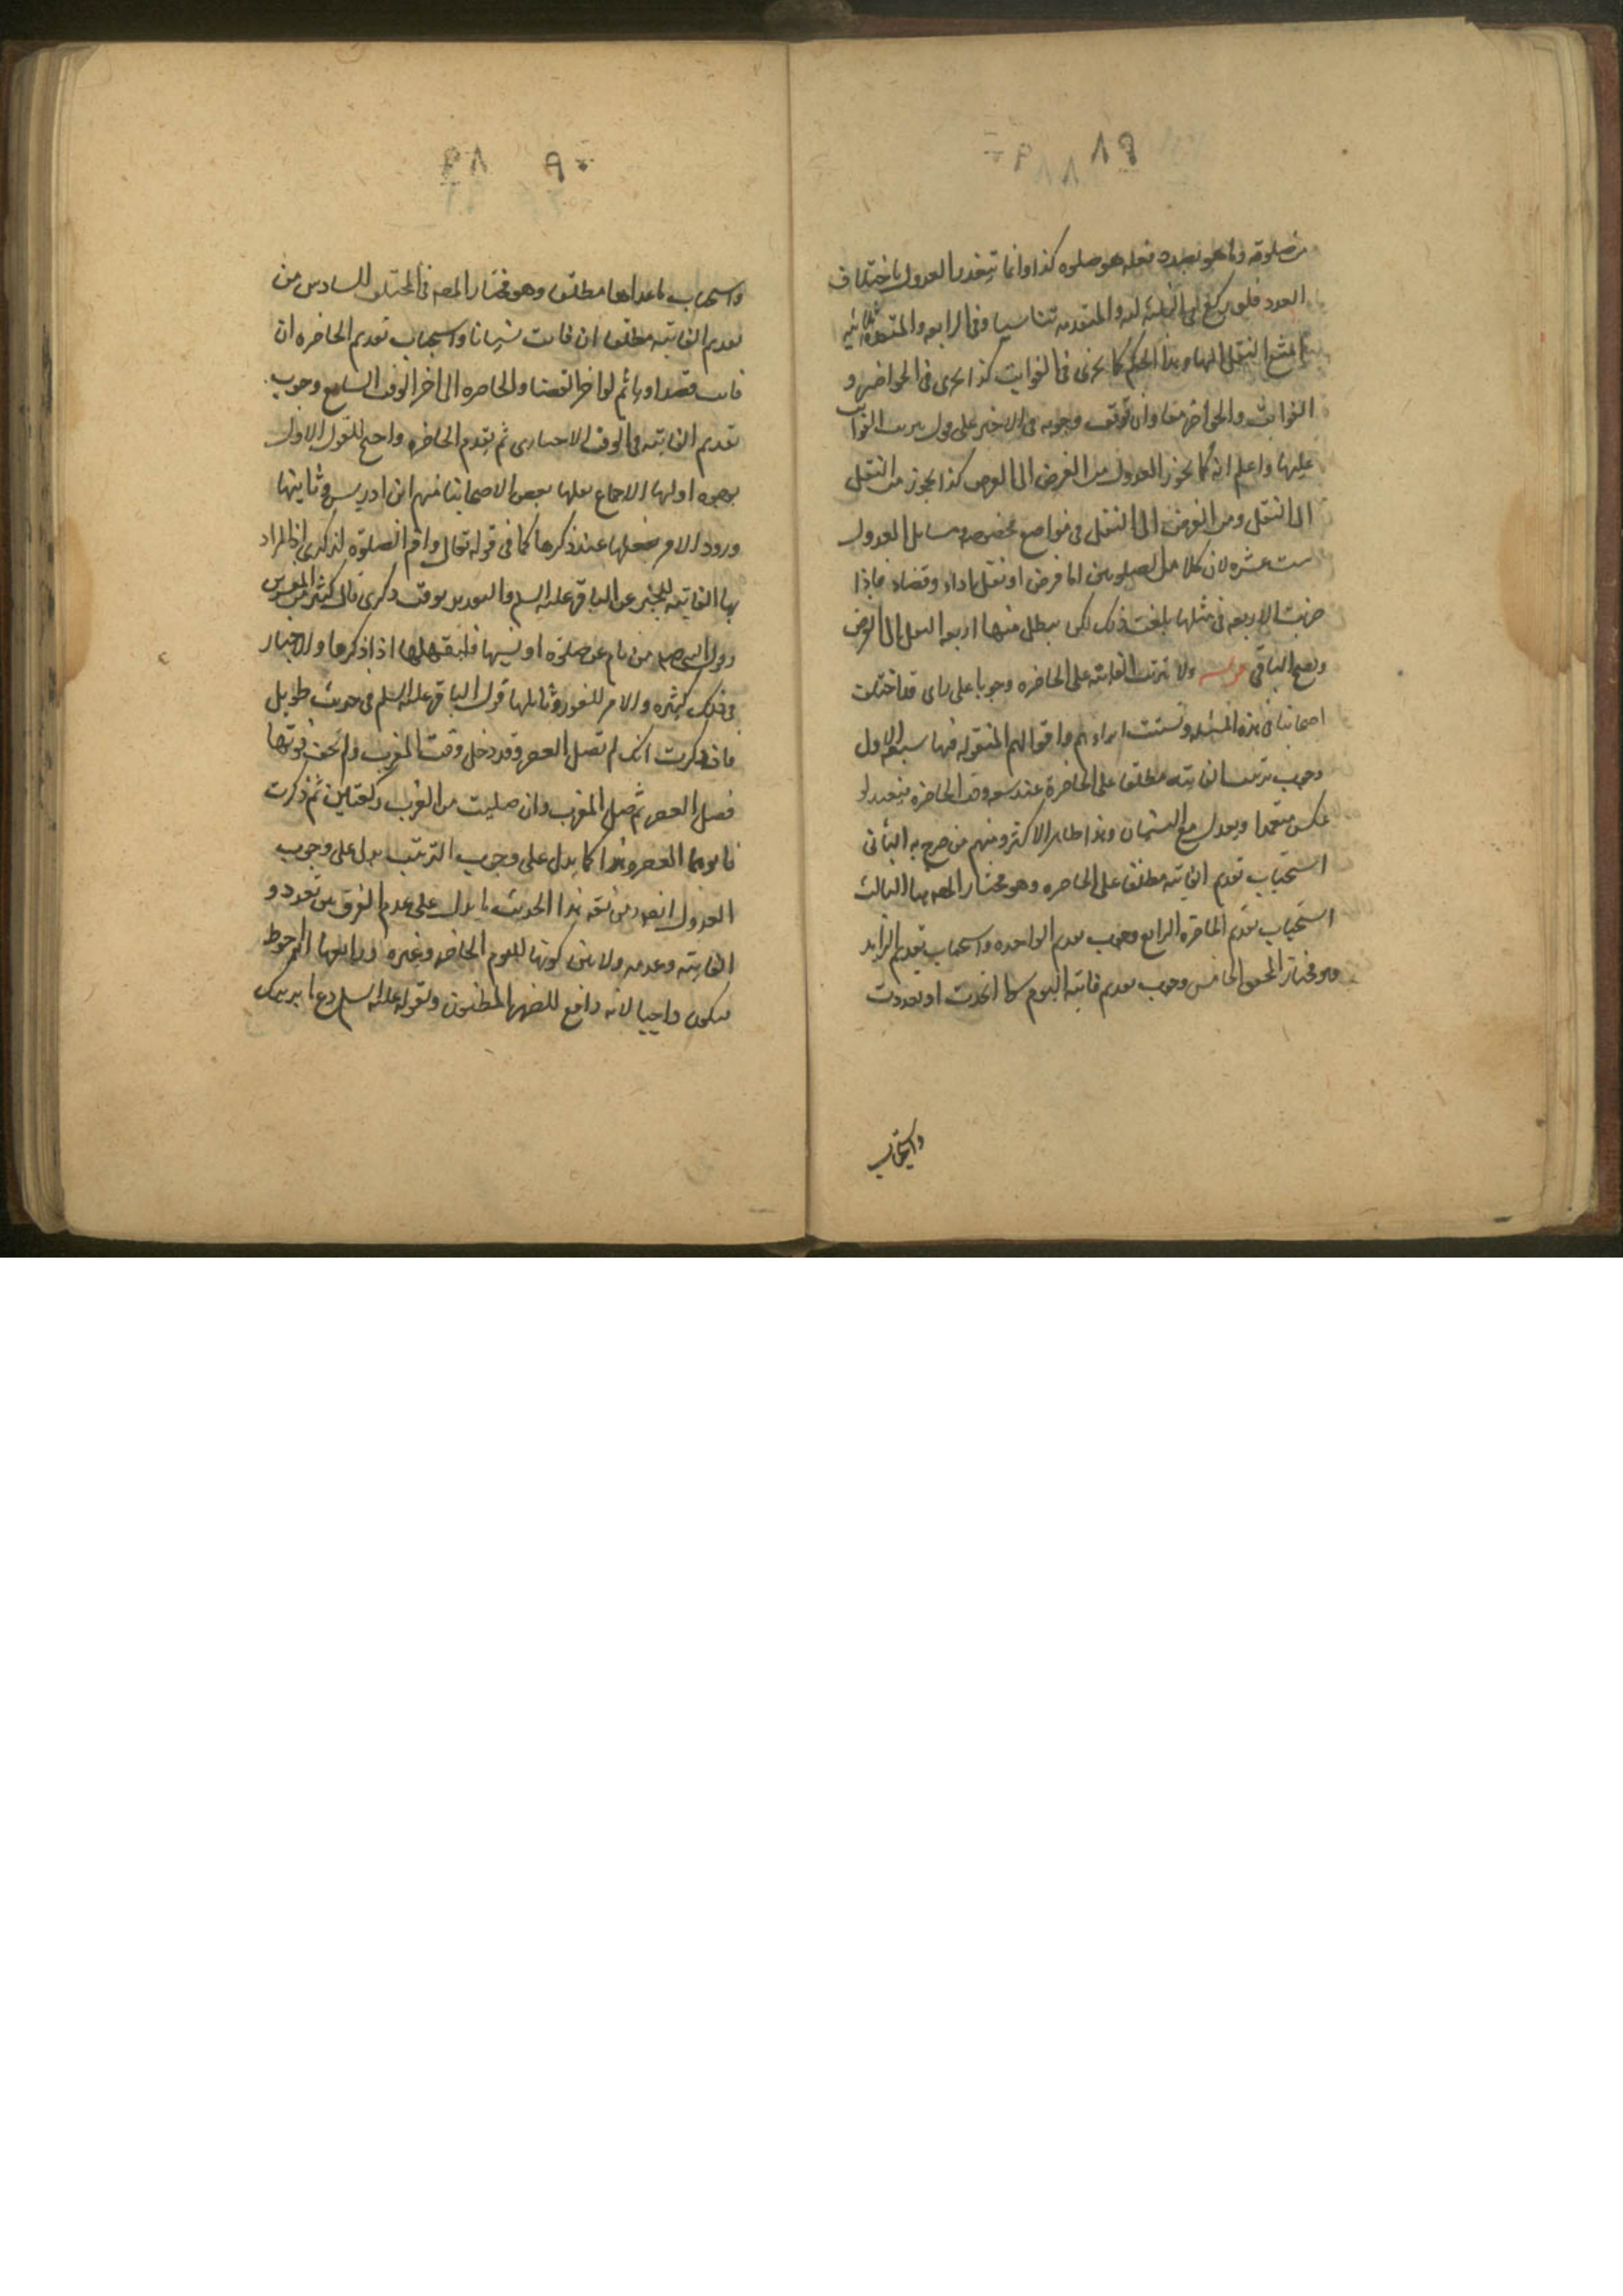 ٨٩
من صلوته وما هو بصدد فعله هو صلوة كذا وانما تتعذر العدول باختلاف
العدد فلو ركع في الثالثة والمتقدمة ثنائية
امتنع النقل اليها وهذا الحكم كما يجرى فى الفوايت كذا يجرى فى الحواضر و
الفوائت والحواضر معا وان توقف وجوبه فى الاخير على قول بترتب الفوايت
عليها واعلم انه كما يجوز العدول من الفرض الى الفرض كذا يجوز من النفل
الى النفل ومن الفرض الى النفل فى مواضع مخصوصه ومسايل العدول
ست عشره لان كلا من الصلوتين اما فرض او نفل اداء وقضاء فاذا
ضربت الاربعه فى مثلها بلغت ذلك لكن يبطل منها اربعه النفل الى الفرض
ويصح الباقى قوله ولا تترتب الفائته على الحاضره وجوبا على راى قد اختلف
اصحابنا فى هذه المسئله وتشتت اراءهم واقوالهم المنقوله فيها سبعه الاول
وجوب ترتيب الفايته مطلقا على الحاضرة عند سعه وقت الحاضره فيعيد لو
عكس متعمدا ويعدل مع النسيان وهذا ظاهر الاكثر ومنهم من صرح به الثانى
استحباب تقديم الفايته مطلقا على الحاضره وهو مختار المصنف هنا الثالث
استحباب تقديم الحاضره الرابع وجوب تقديم الواحده واستحباب تقديم الزايد
وهو مختار المحقق الخامس وجوب تقديم فايته اليوم سواء اتحدت او تعددت
واستحباب
٩٠
واستحباب ما عداها مطلقا وهو مختار المصنف فى المختلف السادس من
تقديم الفايته مطلقا ان فاتت نسيانا واستحباب تقديم الحاضره ان
فاتت قصدا وياثم لو اخر القضا والحاضره الى اخر الوقت السابع وجوب
تقديم الفايته فى الوقت الاختيارى ثم يقدم الحاضره واحتج للقول الاول
بوجوه اولها الاجماع نقلها بعض الاصحابنا منهم ابن ادريس وثانيتها
ورود الامر بفعلها عند ذكرها كما فى قوله تعالى واقم الصلوة لذكرى اذ المراد
بها الفايته للخبر عن الباقر عليه السلم والتقدير بوقت ذكرى قال كثير من المفسرين
وقول النبى صلم من نام عن صلوة او نسيها فليقضها اذا ذكرها والاخبار
فى ذلك كثيره والامر للفور وثالثها قول الباقر عليه السلم فى حديث طويل
فان ذكرت انك لم تصل العصر وقد دخل وقت المغرب ولم تخف فوتها
فصل العصر ثم صل المغرب وان صليت من المغرب ركعتين ثم ذكرت
فانوها العصر وهذا كما يدل على وجوب الترتيب يدل على وجوب
العدول ايضا ومن تتمه هذا الحديث ما يدل على عدم الفرق بين تعدد و
الفايته وعدمه ولا بين كونها لليوم الحاضر وغيره ورابعها انه احوط
فيكون واجبا لانه دافع للضرر المظنون ولقوله عليه السلم دع ما يريبك